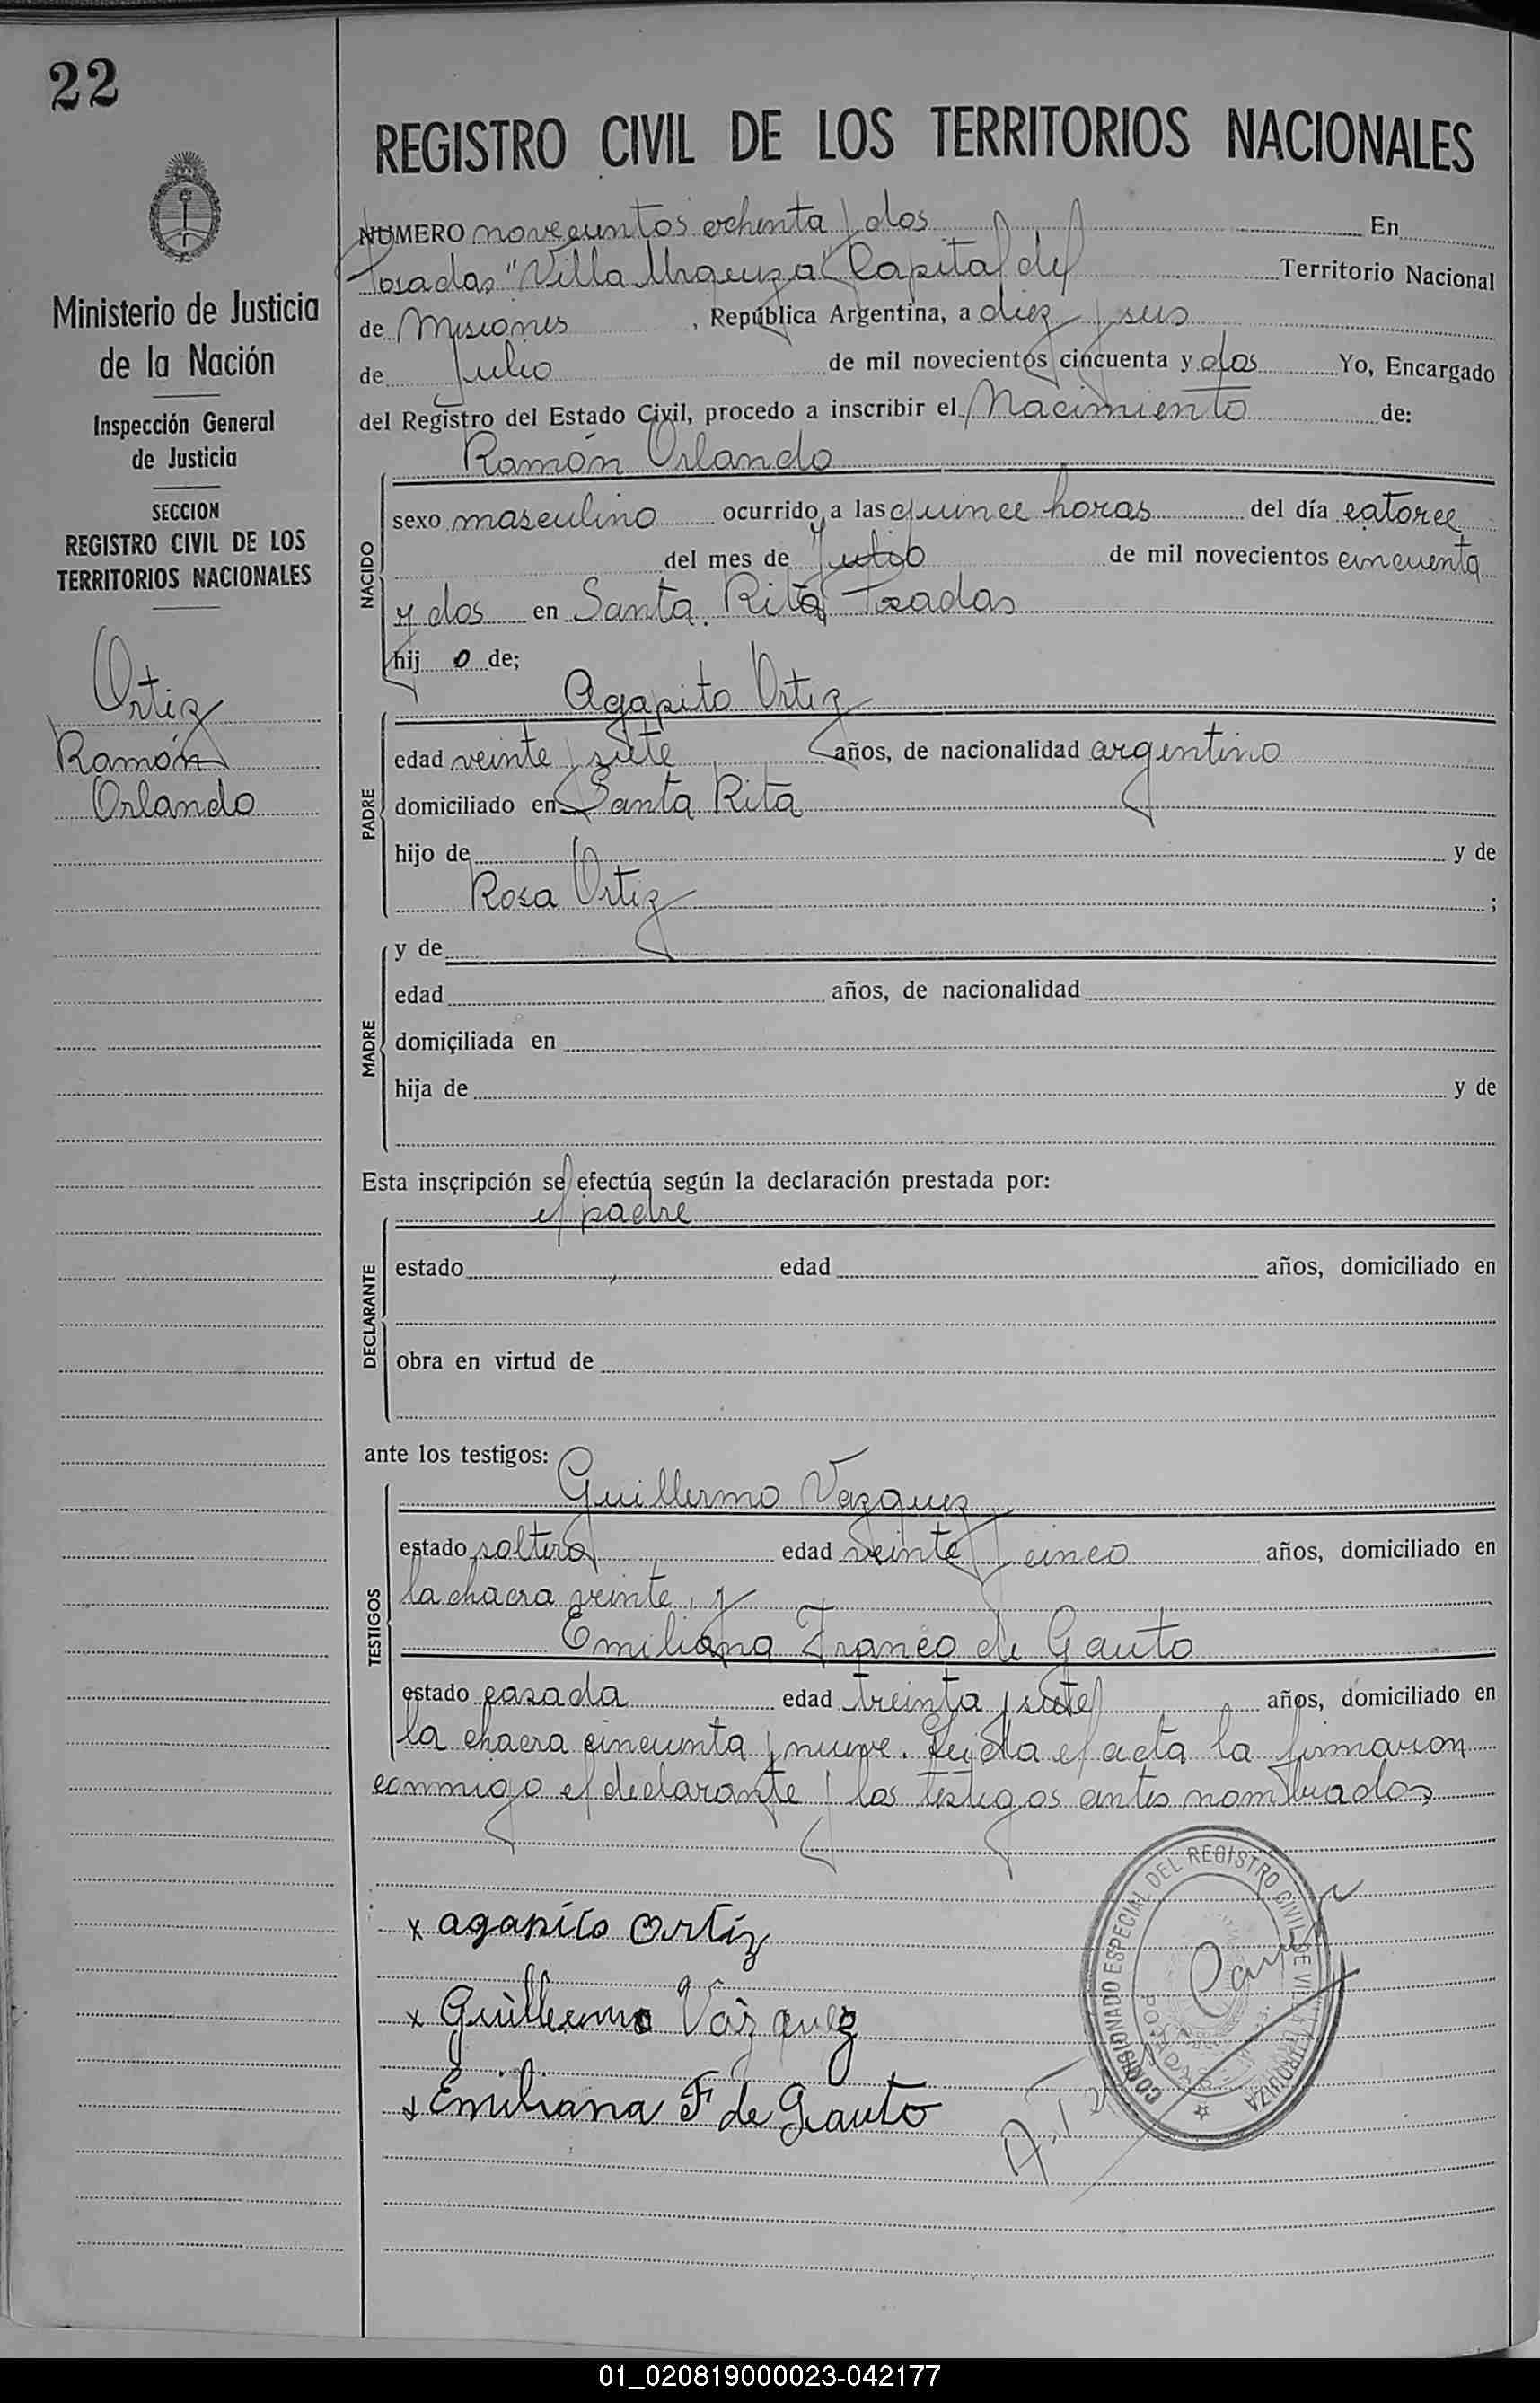 22
Ministerio de Justicia
de la Nación
Inspección General
de Justicia
SECCION
REGISTRO CIVIL DE LOS
TERRITORIOS NACIONALES
Ortiz
Ramón
Orlando
REGISTRO CIVIL DE LOS TERRITORIOS NACIONALES
NUMERO novecientos ochenta y dos En
Posadas "Villa Urquiza" Capital del Territorio Nacional
de Misiones, República Argentina, a diez y seis
de Julio de mil novecientos cincuenta y dos Yo, Encargado
del Registro del Estado Civil, procedo a inscribir el Nacimiento de:
Ramón Orlando
NACIDO
sexo masculino ocurrido a las quince horas del día catorce
del mes de Julio de mil novecientos cincuenta
y dos en Santa Rita Posadas
hij o de;
PADRE
Agapito Ortiz
edad veinte y siete años, de nacionalidad argentino
domiciliado en Santa Rita
hijo de y de
Rosa Ortiz ;
MADRE
y de
edad años, de nacionalidad
domiciliada en
hija de y de
Esta inscripción se efectúa según la declaración prestada por:
DECLARANTE
el padre
estado edad años, domiciliado en
obra en virtud de
ante los testigos:
TESTIGOS
Guillermo Vazquez
estado soltero edad veinte y cinco años, domiciliado en
la chacra veinte, y
Emiliana Franco de Gauto
estado casada edad treinta y siete años, domiciliado en
la chacra cincuenta y nueve. Leida el acta la firmaron
conmigo el declarante y los testigos antes nombrados
x agapito Ortiz
x Guillermo Vázquez
x Emiliana F de Gauto
COMISIONADO ESPECIAL DEL REGISTRO CIVIL DE VILLA URQUIZA
POSADAS
01_020819000023-042177